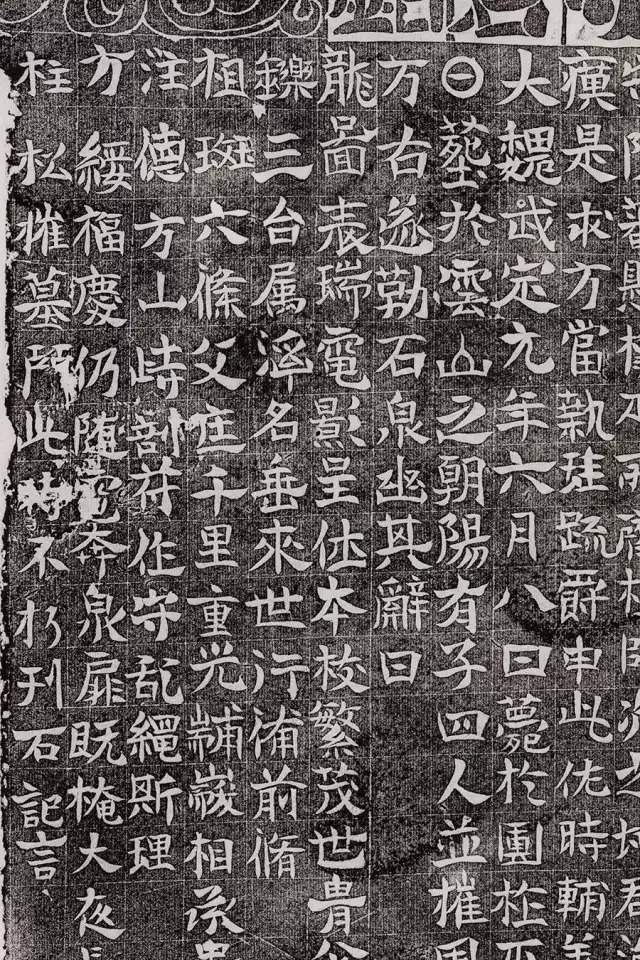 瘼是求方當執珪踈爵申此佐時輔
大魏武定元年六月八日薨於
日葬於雲山之朝陽有子四人並摧
万右遂勒石泉幽其辭曰
龍啚表瑞電影呈休本枝繁茂世胄
鑠三台属名垂來世行脩前脩
祖斑六條父庄千里重光黼黻相承
注德方山峙剖符作守乱繩斯理
方綏福慶仍随奔泉扉既掩大夜
柱松摧墓門此時不朽刊石記言